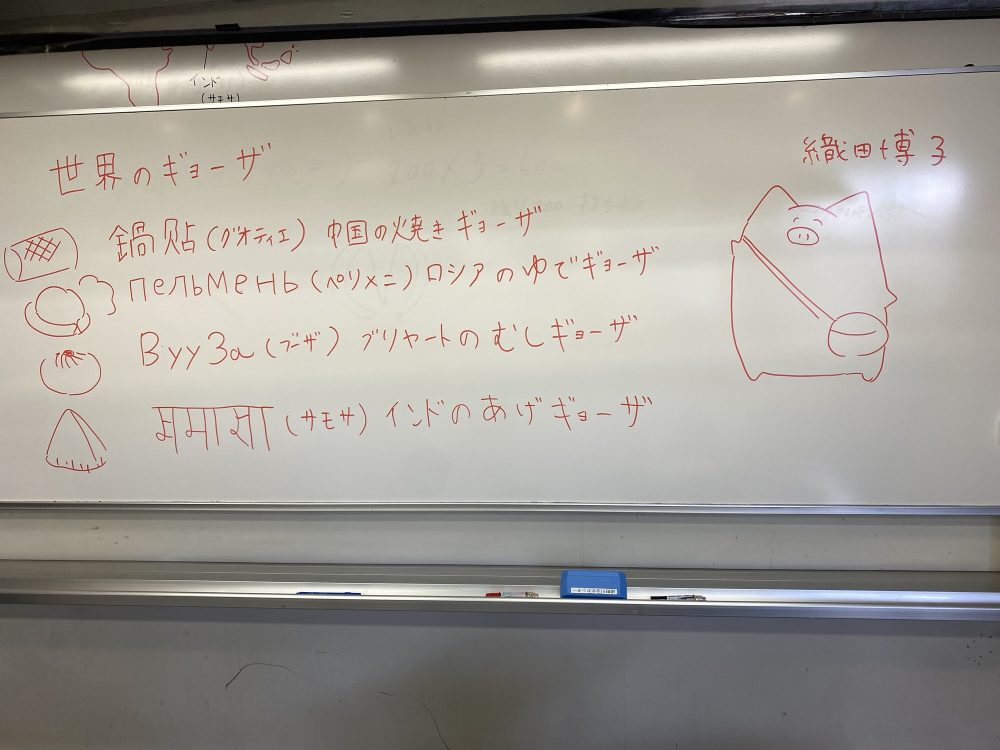 インド
(サモサ)
世界のギョーザ
織田博子
鍋貼(グオティエ) 中国の焼きギョーザ
пельмень (ペリメニ) ロシアのゆでギョーザ
Вууза (ブーザ) ブリヤートのむしギョーザ
(サモサ) インドのあげギョーザ